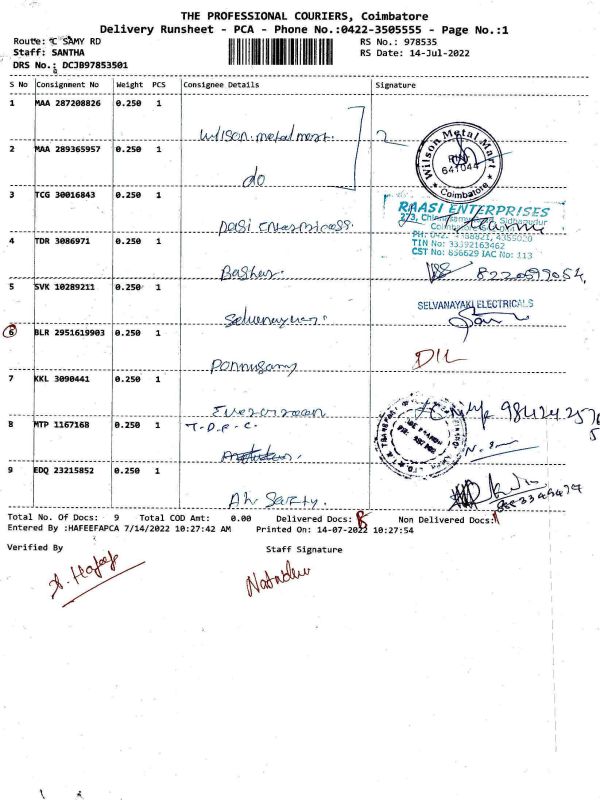 THE PROFESSIONAL COURIERS, Coimbatore
Delivery Runsheet - PCA - Phone No.:0422-3505555 - Page No.:1
Route: C SAMY RD
RS No.: 978535
Staff: SANTHA
RS Date: 14-Jul-2022
DRS No.: DCJB97853501
S No Consignment No Weight PCS Consignee Details Signature
1 MAA 287208826 0.250 1
Wilson metal mart.
2 MAA 289365957 0.250 1
do
Wilson Metal Mart
PIN
641044
Coimbatore
3 TCG 30016843 0.250 1
RAASI ENTERPRISES
TIN No: 33392163462
CST No: 856629 IAC No: 113
4 TDR 3086971 0.250 1
Bashar.
5 SVK 10289211 0.250 1
SELVANAYAKI ELECTRICALS
6 BLR 2951619903 0.250 1
Ponnusamy
DIL
7 KKL 3090441 0.250 1
8 MTP 1167168 0.250 1
T.D.R.C.
9 EDQ 23215852 0.250 1
Total No. Of Docs: 9 Total COD Amt: 0.00 Delivered Docs: Non Delivered Docs:
Entered By :HAFEEFAPCA 7/14/2022 10:27:42 AM Printed On: 14-07-2022 10:27:54
Verified By Staff Signature